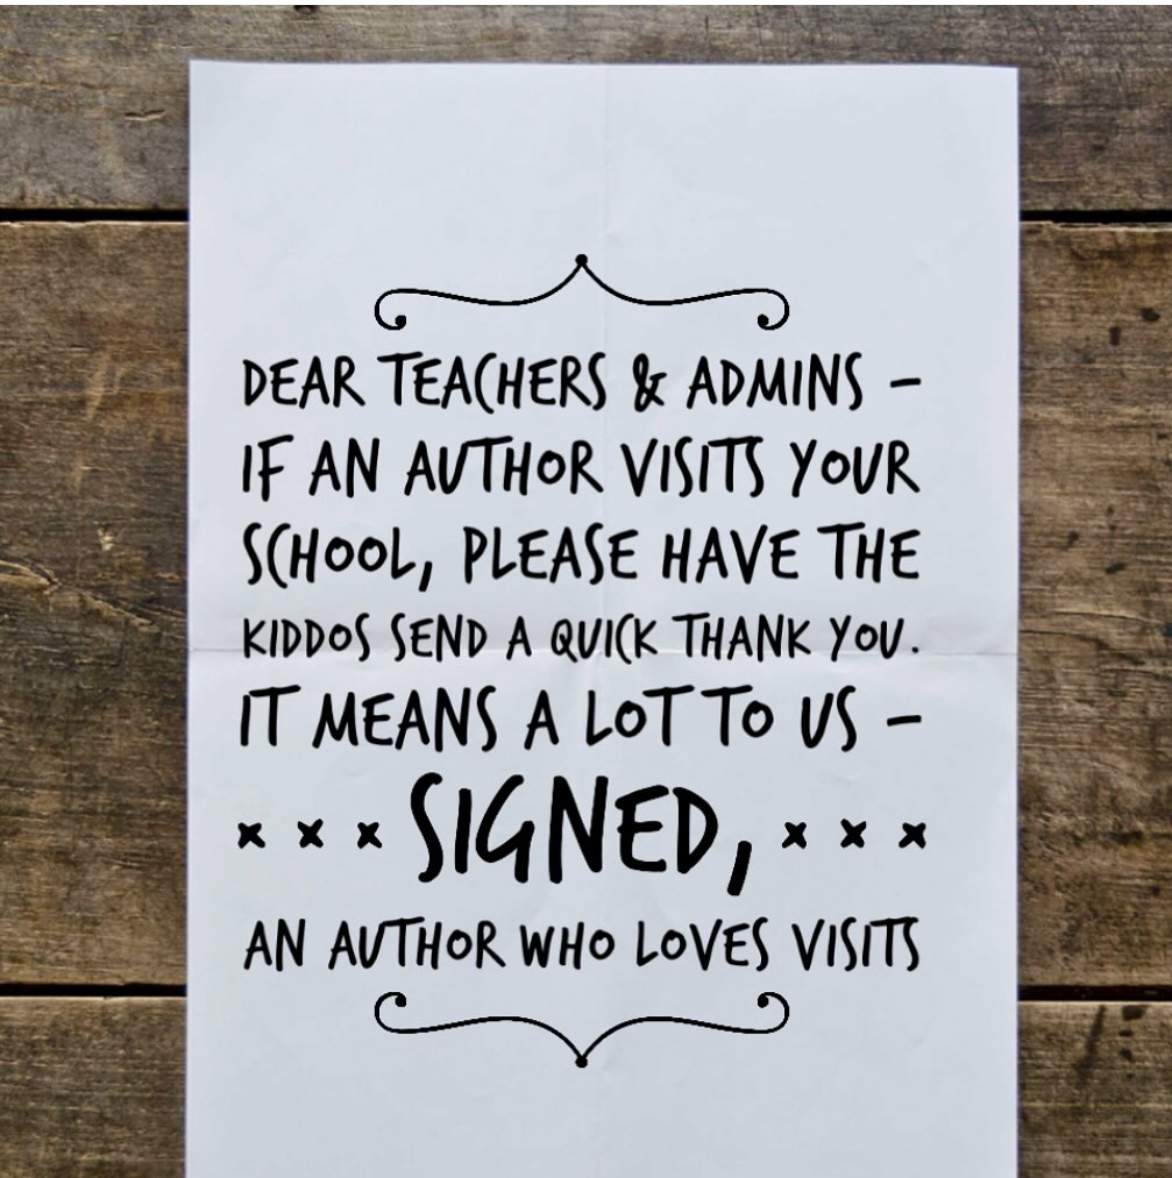 DEAR TEACHERS & ADMINS –
IF AN AUTHOR VISITS YOUR
SCHOOL, PLEASE HAVE THE
KIDDOS SEND A QUICK THANK YOU.
IT MEANS A LOT TO US –
x x x SIGNED, x x x
AN AUTHOR WHO LOVES VISITS